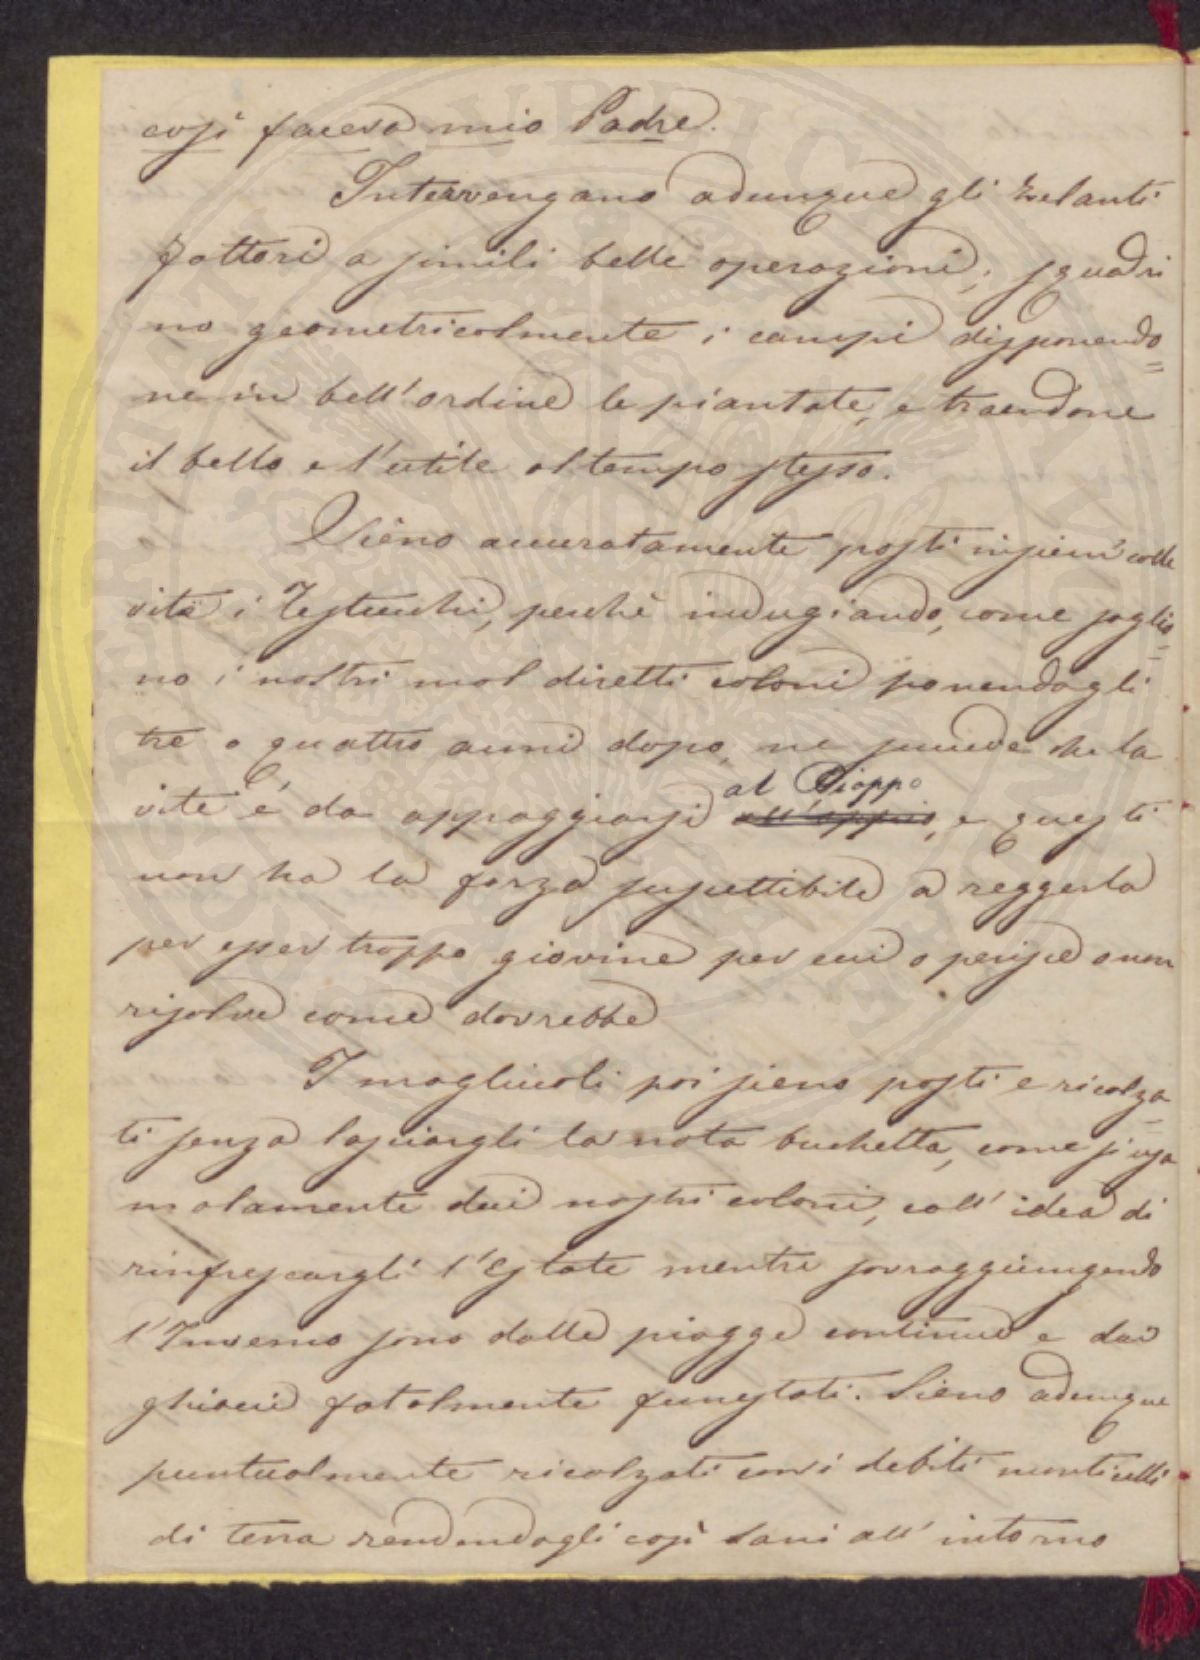 così faceva mio Padre.
Intervengano adunque gli zelanti
fattori a simili belle operazioni; squadri
no geometricalmente i campi disponendo=
ne in bell'ordine le piantate, e traendone
il bello e l'utile al tempo stesso.
Sieno accuratamente posti insiem' colle
vite i Testucchi, perchè indugiando, come soglio=
no i nostri mal diretti coloni ponendogli
tre o quattro anni dopo, ne succede che la
vite è da appoggiarsi al Pioppo all'oppio, e questi
non ha la forza suscettibile a reggerla
per esser troppo giovine per cui o perisce o non
risolve come dovrebbe
I magliuoli poi sieno posti e ricolza=
ti senza lasciargli la nota buchetta, come si usa
malamente dai nostri coloni, coll' idea di
rinfrescargli l'Estate mentre sovraggiungendo
l'Inverno sono dalle piogge continue e dai
ghiacci fatalmente funestati. Sieno adunque
puntualmente ricolzati con i debiti monticelli
di terra rendendogli così sani all' intorno